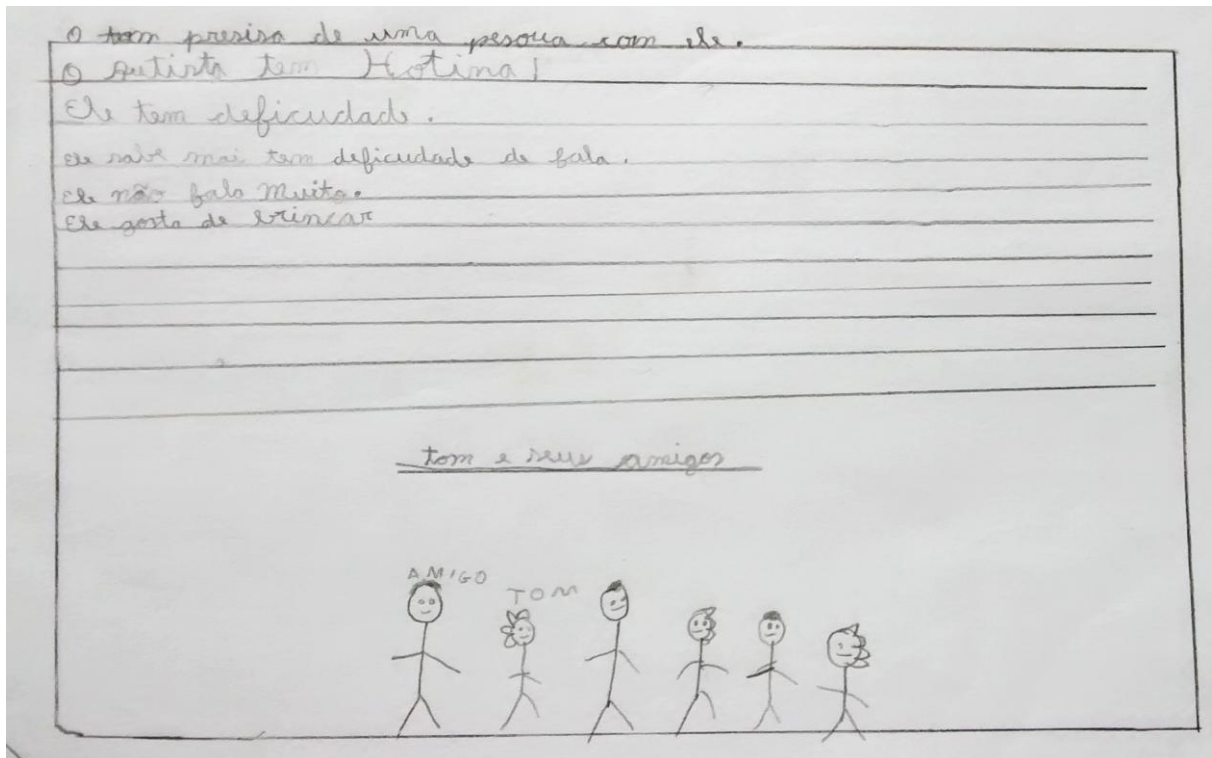 O tom presisa de uma pesoua com ele.
O Autista tem Hotina!
Ele tem deficudade.
ele sabe mai tem deficudade de fala.
ele não fala Muito.
Ele gosta de brincar
tom e seus amigos
AMIGO
TOM